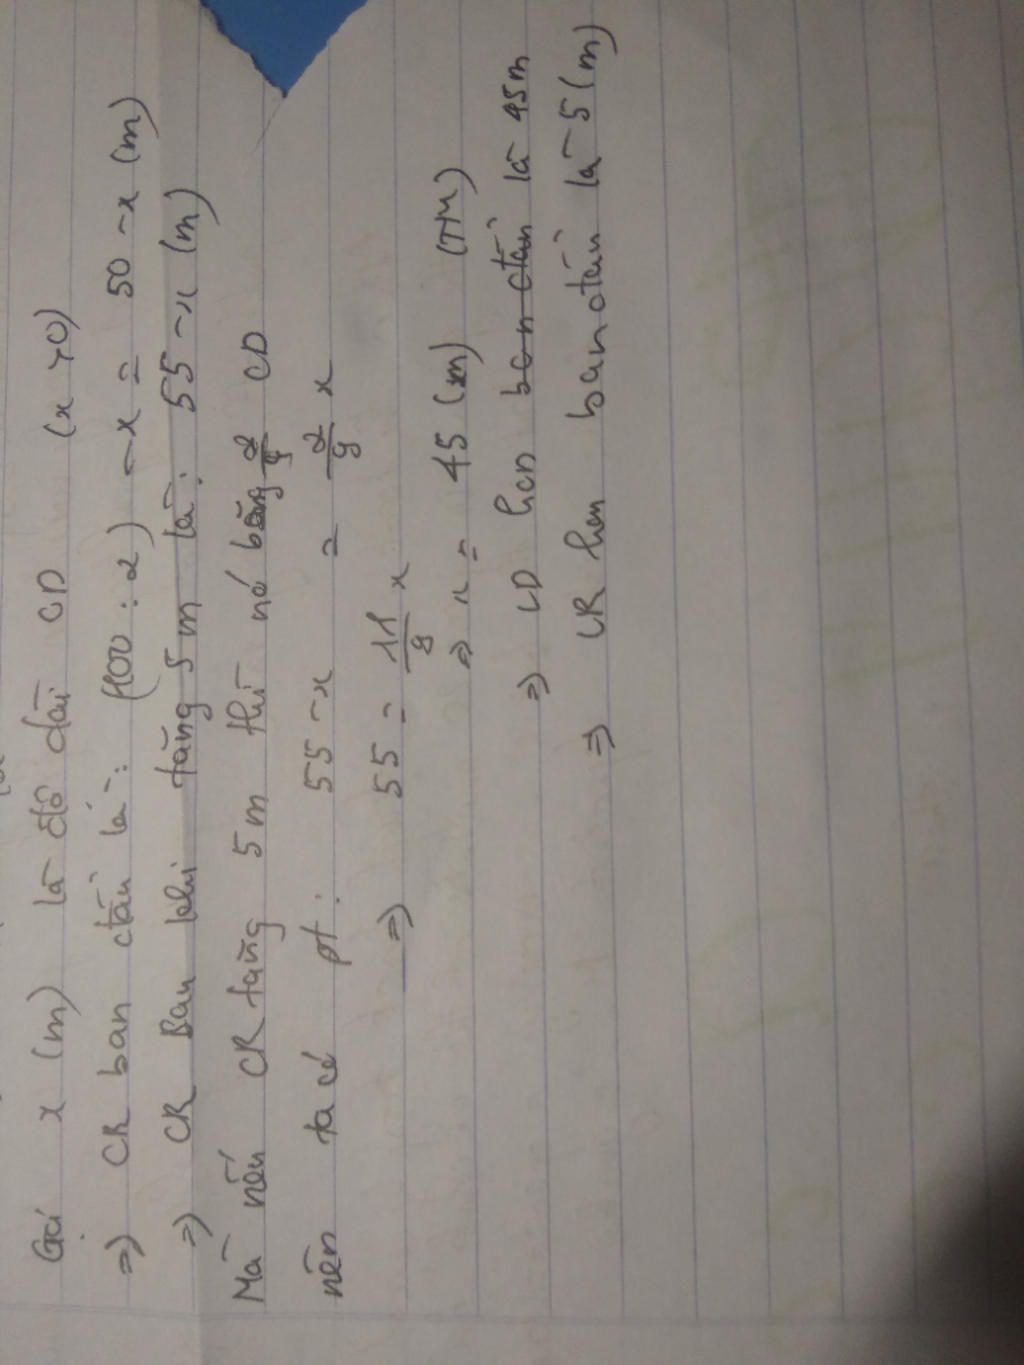 Gọi x (m) là độ dài CD (x > 0)
=> CR ban đầu là: (100 : 2) - x = 50 - x (m)
=> CR Ban khi tăng 5 m là: 55 - x (m)
Mà nếu CR tăng 5 m thì nó bằng 2/9 CD
nên ta có pt: 55 - x = 2/9 x
=> 55 = 11/9 x
=> x = 45 (m) (TM)
=> CD hcn ban đầu là 45 m
=> CR hcn ban đầu là 5 (m)